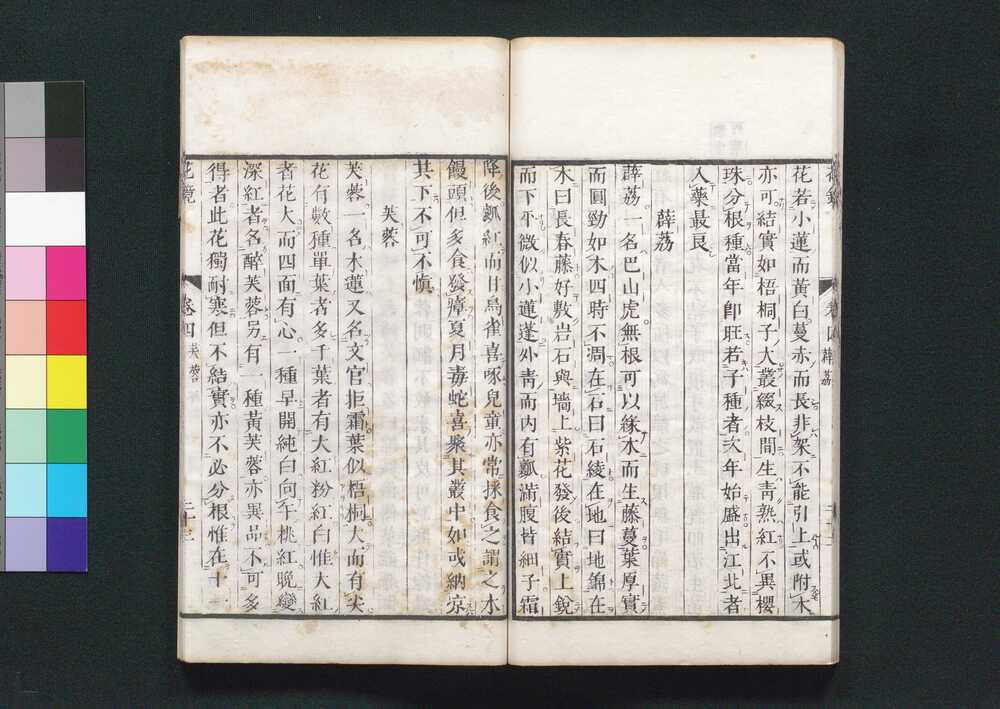 花若小蓮而黃白蔓赤而長非架不能引上或附木
亦可結實如梧桐子大叢綴枝間生青熟紅不異櫻
珠分根種當年卽旺若子種者次年始盛出江北者
入藥最良
薜荔
薜荔一名巴山虎無根可以緣木而生藤蔓葉厚實
而圓勁如木四時不凋在石曰石綾在地曰地錦在
木曰長春藤好敷岩石與墻上紫花發後結實上銳
而下平微似小蓮蓬外靑而內有瓤滿腹皆細子霜
花鏡
卷四 薜荔
二十三
降後瓤紅而甘鳥雀喜啄兒童亦常採食之謂之木
饅頭但多食發瘴夏月毒蛇喜聚其叢中如或納凉
其下不可不愼
芙蓉
芙蓉一名木蓮又名文官拒霜葉似梧桐大而有尖
花有數種單葉者多千葉者有大紅粉紅白惟大紅
者花大而四面有心一種早開純白向午桃紅晚變
深紅者名醉芙蓉另有一種黃芙蓉亦異品不可多
得者此花獨耐寒但不結實亦不必分根惟在十一
花鏡
卷四 芙蓉
二十三